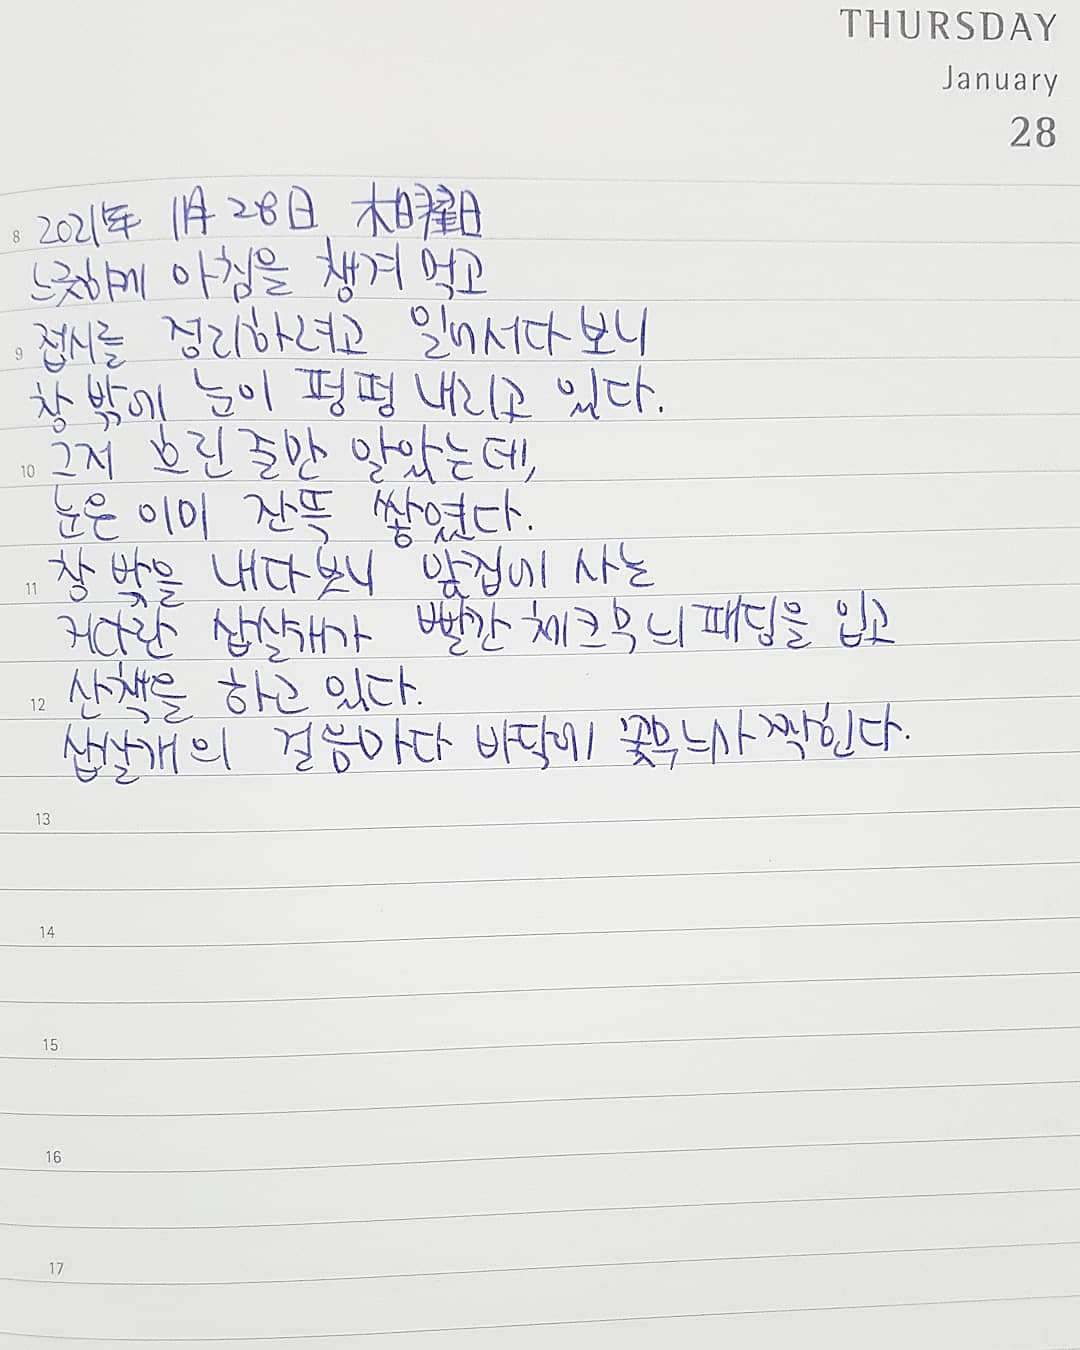 THURSDAY
January
28
8 2021年 1月 28日 木曜日
느긋하게 아침을 챙겨 먹고
9 접시를 정리하려고 일어서다 보니
창 밖에 눈이 펑펑 내리고 있다.
10 그저 흐린 줄만 알았는데,
눈은 이미 잔뜩 쌓였다.
11 창 밖을 내다보니 앞집에 사는
커다란 삽살개가 빨간 체크무늬 패딩을 입고
12 산책을 하고 있다.
삽살개의 걸음마다 바닥에 꽃무늬가 찍힌다.
13
14
15
16
17